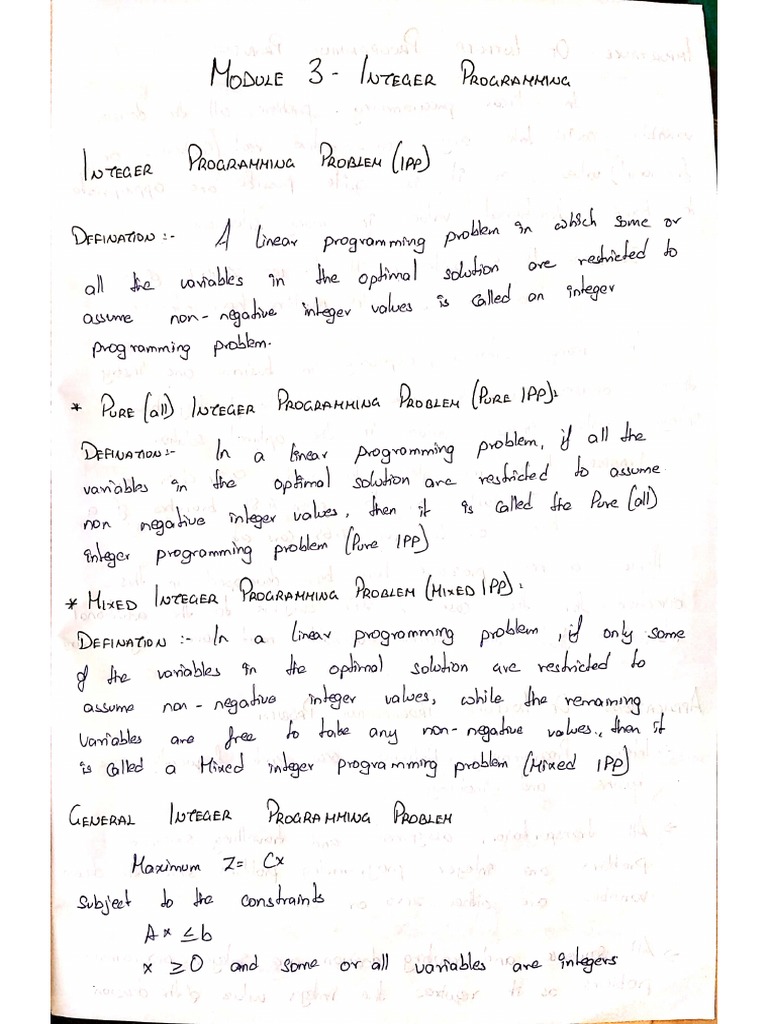 MODULE 3 - INTEGER PROGRAMMING
INTEGER PROGRAMMING PROBLEM (IPP)
DEFINATION :- A linear programming problem in which some or
all the variables in the optimal solution are restricted to
assume non-negative integer values is called an integer
programming problem.
* PURE (all) INTEGER PROGRAMMING PROBLEM (PURE IPP):
DEFINATION:- In a linear programming problem, if all the
variables in the optimal solution are restricted to assume
non negative integer values, then it is called the Pure (all)
integer programming problem (Pure IPP)
* MIXED INTEGER PROGRAMMING PROBLEM (MIXED IPP):
DEFINATION :- In a linear programming problem, if only some
of the variables in the optimal solution are restricted to
assume non-negative integer values, while the remaning
variables are free to take any non-negative values., then it
is called a Mixed integer programming problem (Mixed IPP)
GENERAL INTEGER PROGRAMMING PROBLEM
Maximum Z= Cx
Subject to the constraints
Ax ≤ b
x ≥ 0 and some or all variables are integers